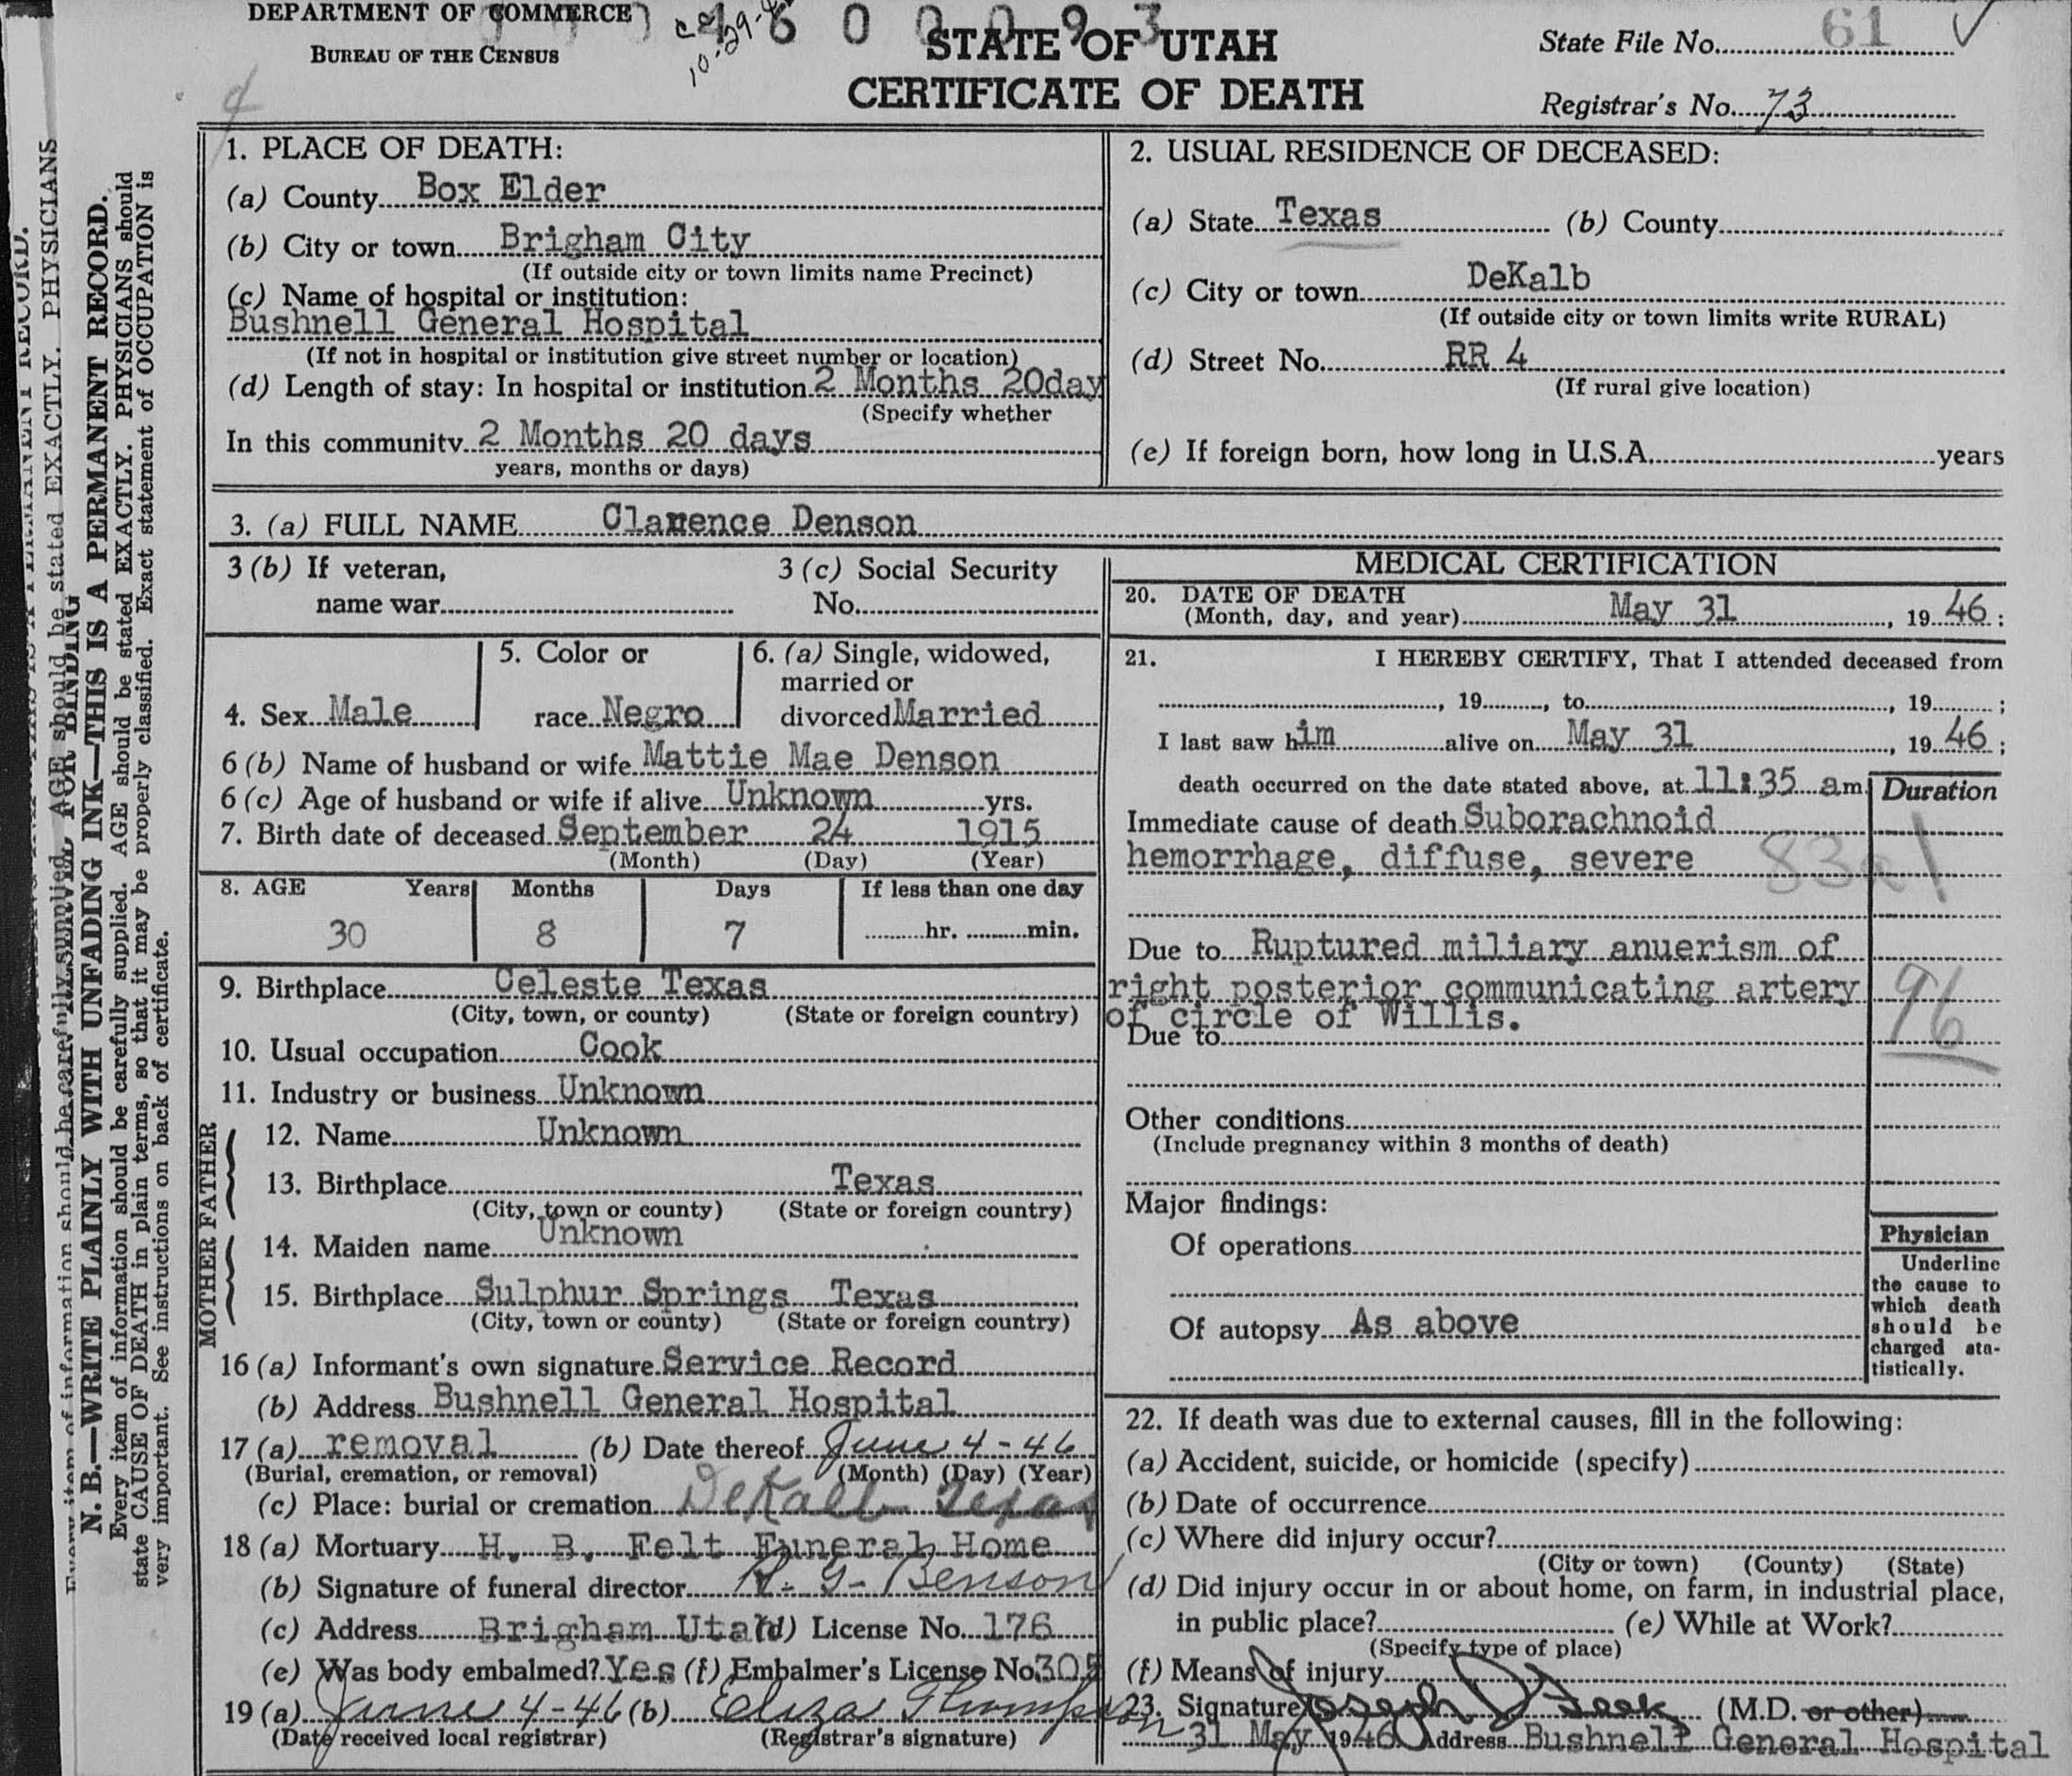 DEPARTMENT OF COMMERCE
BUREAU OF THE CENSUS
10-29-
6 0 0 0 9 3
STATE OF UTAH
CERTIFICATE OF DEATH
State File No. 61
Registrar's No. 73
N. B.—WRITE PLAINLY WITH UNFADING INK—THIS IS A PERMANENT RECORD.
Every item of information should be carefully supplied. AGE should be stated EXACTLY. PHYSICIANS should
state CAUSE OF DEATH in plain terms, so that it may be properly classified. Exact statement of OCCUPATION is
very important. See instructions on back of certificate.
1. PLACE OF DEATH:
(a) County Box Elder
(b) City or town Brigham City
(If outside city or town limits name Precinct)
(c) Name of hospital or institution:
Bushnell General Hospital
(If not in hospital or institution give street number or location)
(d) Length of stay: In hospital or institution 2 Months 20day
(Specify whether
In this community 2 Months 20 days
years, months or days)
2. USUAL RESIDENCE OF DECEASED:
(a) State Texas (b) County
(c) City or town DeKalb
(If outside city or town limits write RURAL)
(d) Street No. RR 4
(If rural give location)
(e) If foreign born, how long in U.S.A. years
3. (a) FULL NAME Clarence Denson
3 (b) If veteran,
name war
3 (c) Social Security
No.
4. Sex Male
5. Color or
race Negro
6. (a) Single, widowed,
married or
divorced Married
6 (b) Name of husband or wife Mattie Mae Denson
6 (c) Age of husband or wife if alive Unknown yrs.
7. Birth date of deceased September 24 1915
(Month) (Day) (Year)
8. AGE Years Months Days If less than one day
30 8 7 hr. min.
9. Birthplace Celeste Texas
(City, town, or county) (State or foreign country)
10. Usual occupation Cook
11. Industry or business Unknown
FATHER
12. Name Unknown
13. Birthplace Texas
(City, town or county) (State or foreign country)
MOTHER
14. Maiden name Unknown
15. Birthplace Sulphur Springs Texas
(City, town or county) (State or foreign country)
16 (a) Informant's own signature Service Record
(b) Address Bushnell General Hospital
17 (a) removal (b) Date thereof June 4-46
(Burial, cremation, or removal) (Month) (Day) (Year)
(c) Place: burial or cremation DeKalb Texas
18 (a) Mortuary H. B. Felt Funeral Home
(b) Signature of funeral director R. G. Benson
(c) Address Brigham Utah (d) License No. 176
(e) Was body embalmed? Yes (f) Embalmer's License No. 305
19 (a) June 4-46 (b) Eliza Thompson
(Date received local registrar) (Registrar's signature)
MEDICAL CERTIFICATION
20. DATE OF DEATH
(Month, day, and year) May 31, 19 46;
21. I HEREBY CERTIFY, That I attended deceased from
, 19 , to , 19 ;
I last saw him alive on May 31, 19 46;
death occurred on the date stated above, at 11:35 am
Duration
Immediate cause of death Suborachnoid
hemorrhage, diffuse, severe 83a
Due to Ruptured miliary anuerism of
right posterior communicating artery 96
of circle of Willis.
Due to
Other conditions
(Include pregnancy within 3 months of death)
Major findings:
Of operations
Of autopsy As above
Physician
Underline
the cause to
which death
should be
charged sta-
tistically.
22. If death was due to external causes, fill in the following:
(a) Accident, suicide, or homicide (specify)
(b) Date of occurrence
(c) Where did injury occur?
(City or town) (County) (State)
(d) Did injury occur in or about home, on farm, in industrial place,
in public place? (e) While at Work?
(Specify type of place)
(f) Means of injury
23. Signature Joseph (M.D. or other)
31 May 1946 Address Bushnell General Hospital